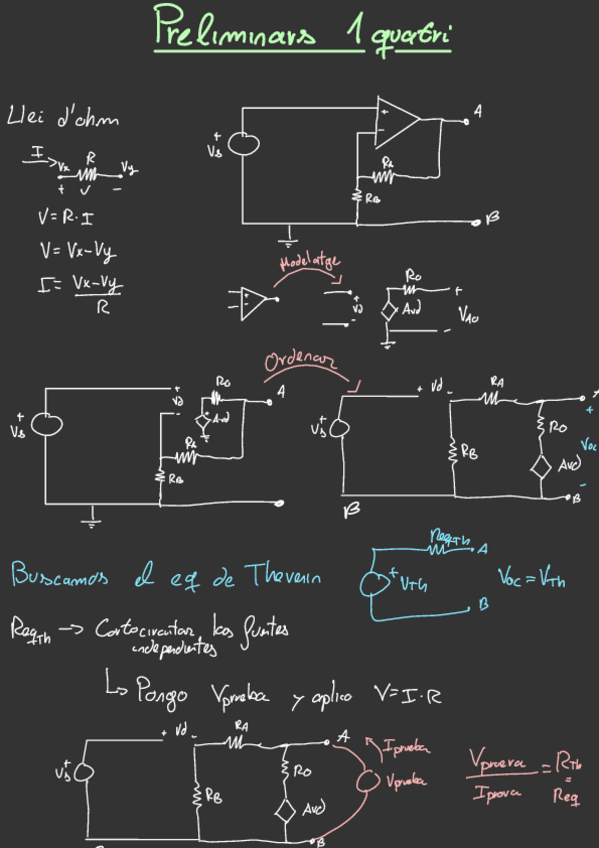 Preliminars 1 quatri
Llei d'ohm
I
Vx R Vy
+ V -
V = R·I
V = Vx-Vy
I = Vx-Vy
R
+
Vs
+
-
A
RA
RB
B
Modelatge
+
-
+
Vd
-
Ro
Avd
+
VAo
-
Ordenar
+
Vs
+
Vd
-
Ro
+
Avd
A
RA
RB
+
Vs
+ Vd -
RA
A
RB
Ro
Avd
+
Voc
-
B
B
Buscamos el eq de Thevenin
ReqTh
A
+
VTh
B
Voc = VTh
ReqTh → Cortocircuitar las fuentes
independientes
↳ Pongo Vprueba y aplico V=I·R
+
Vs
+ Vd -
RA
A
RB
Ro
Avd
B
Iprueba
Vprueba
Vprueva
Iprova
= RTh
=
Req